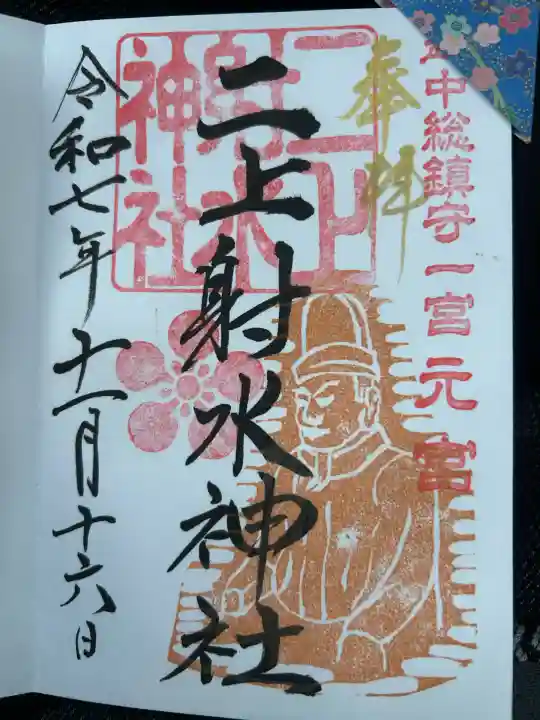 中総鎮守一宮元宮
奉拝
二上射水神社
二上射水神社
令和七年十一月十六日